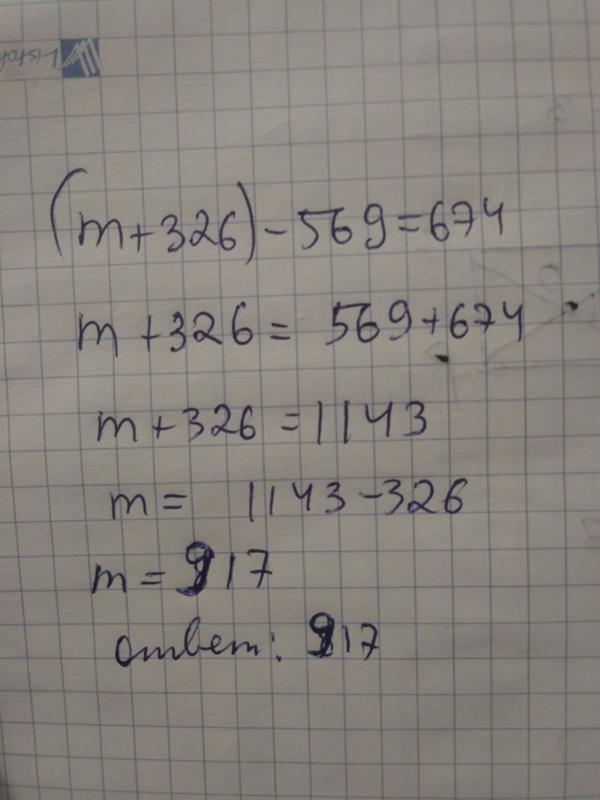 (m+326)-569=674
m+326= 569+674
m+326=1143
m= 1143-326
m=917
ответ: 917